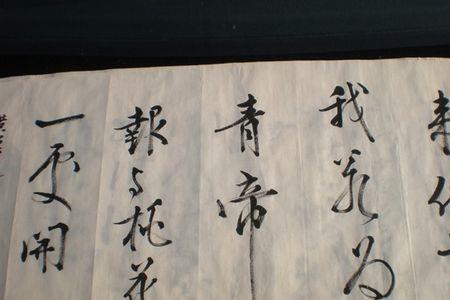 來他
我若為
青帝
報与桃花
一處開